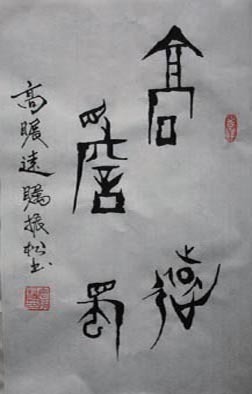 高瞻
遠矚
高瞻遠矚振松书